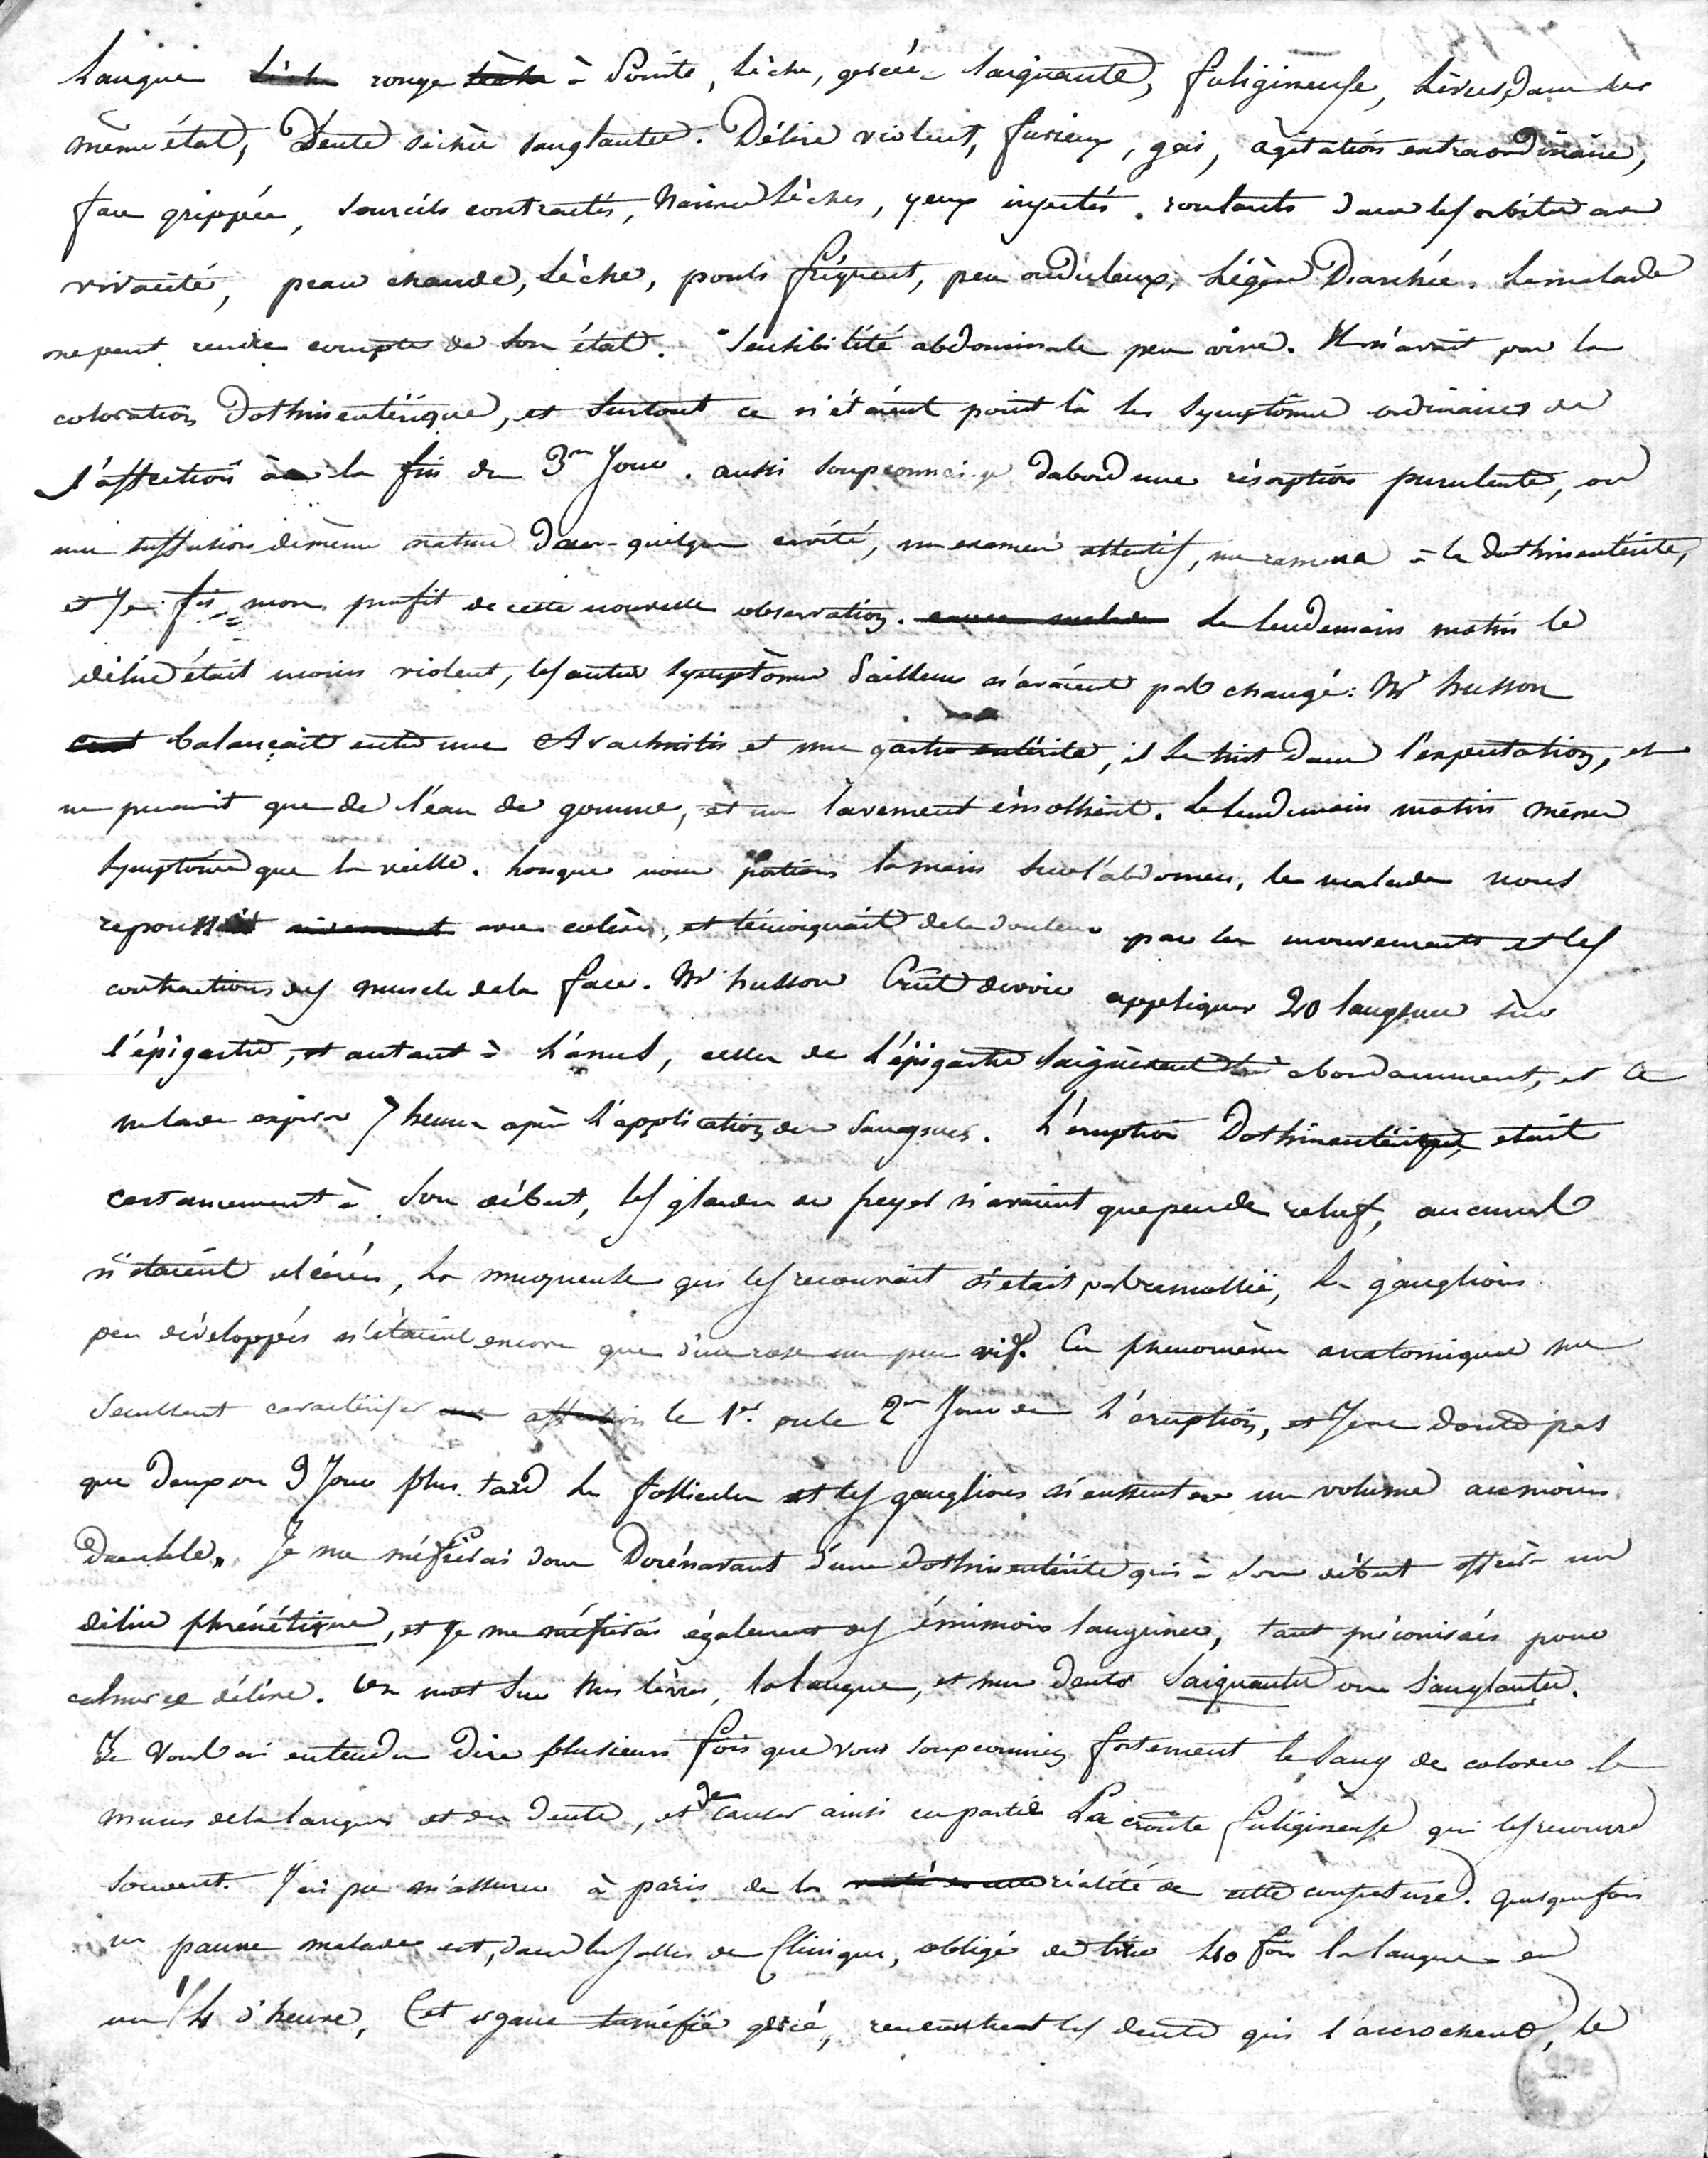 Langue sèche rouge sèche à Pointe, sèche, gercée saignante, fuligineuse, Lèvres dans le
même état, Dents sèches sanglantes. Délire violent, furieux, gai, agitation extraordinaire,
face grippée, sourcils contractés, narines sèches, yeux injectés. roulants dans les orbites avec
vivacité, peau chaude, sèche, pouls fréquent, peu onduleux, Légère Diarrhée. Le malade
ne peut rendre compte de son état. Sensibilité abdominale peu vive. Il n'avait pas la
coloration Dothinentérique, et surtout ce n'étaient point là les symptômes ordinaires de
l'affection à la fin du 3me Jour. aussi soupçonnai-je dabord une résorption purulente, ou
une suffusion de même nature dans quelque cavité, un examen attentif, me ramena à la dothinentérite,
et Je fis mon profit de cette nouvelle observation. Le lendemain matin le
délire était moins violent, les autres symptômes d'ailleurs n'avaient pas changé: Mr husson
balançait entre une Arachnitis et une gastro entérite, il se tint dans l'expectation, et
ne prescrivit que de l'eau de gomme, et un lavement émollient. Le lendemain matin mêmes
symptômes que la veille. Lorsque nous portions la main sur l'abdomen, le malade nous
repoussait vivement avec colère, et témoignait de la douleur par les mouvements et les
contractions des muscles de la face. Mr husson Crut devoir appliquer 20 sangsues sur
l'épigastre, et autant à l'anus, celles de l'épigastre saignèrent très abondamment, et le
malade expira 7 heures après l'application des sangsues. L'éruption Dothinentérique, était
certainement à son début, les glandes de peyer n'avaient que peu de relief, aucunes
n'étaient ulcérées, la muqueuse qui les recouvrait n'était pas ramollie, les ganglions
peu développés n'étaient encore que d'un rose un peu vif. Ces phénomènes anatomiques me
semblent caractériser affection le 1er ou le 2me Jour de l'éruption, et Je ne doute pas
que deux ou 3 Jours plus tard les follicules et les ganglions n'eussent eu un volume au moins
double. Je me méfierai donc Dorénavant d'une dothinentérite qui à son début offrira un
délire phrénétique, et Je me méfierai également des émissions sanguines, tant préconisées pour
calmer ce délire. Un mot sur les lèvres, la langue, et les dents saignantes ou sanglantes.
Je vous ai entendu dire plusieurs fois que vous soupçonniez fortement le sang de colorer le
mucus de la langue et des dents, et de causer ainsi en partie La croûte fuligineuse qui les recouvre
souvent. J'ai pu m'assurer à paris de la réalité de cette conjecture. quelquefois
un pauvre malade est, dans les salles de Clinique, obligé de tirer 40 fois la langue en
un 1/4 d'heure, Cet organe tuméfié gercé, rencontrent les dents qui l'accrochent, le